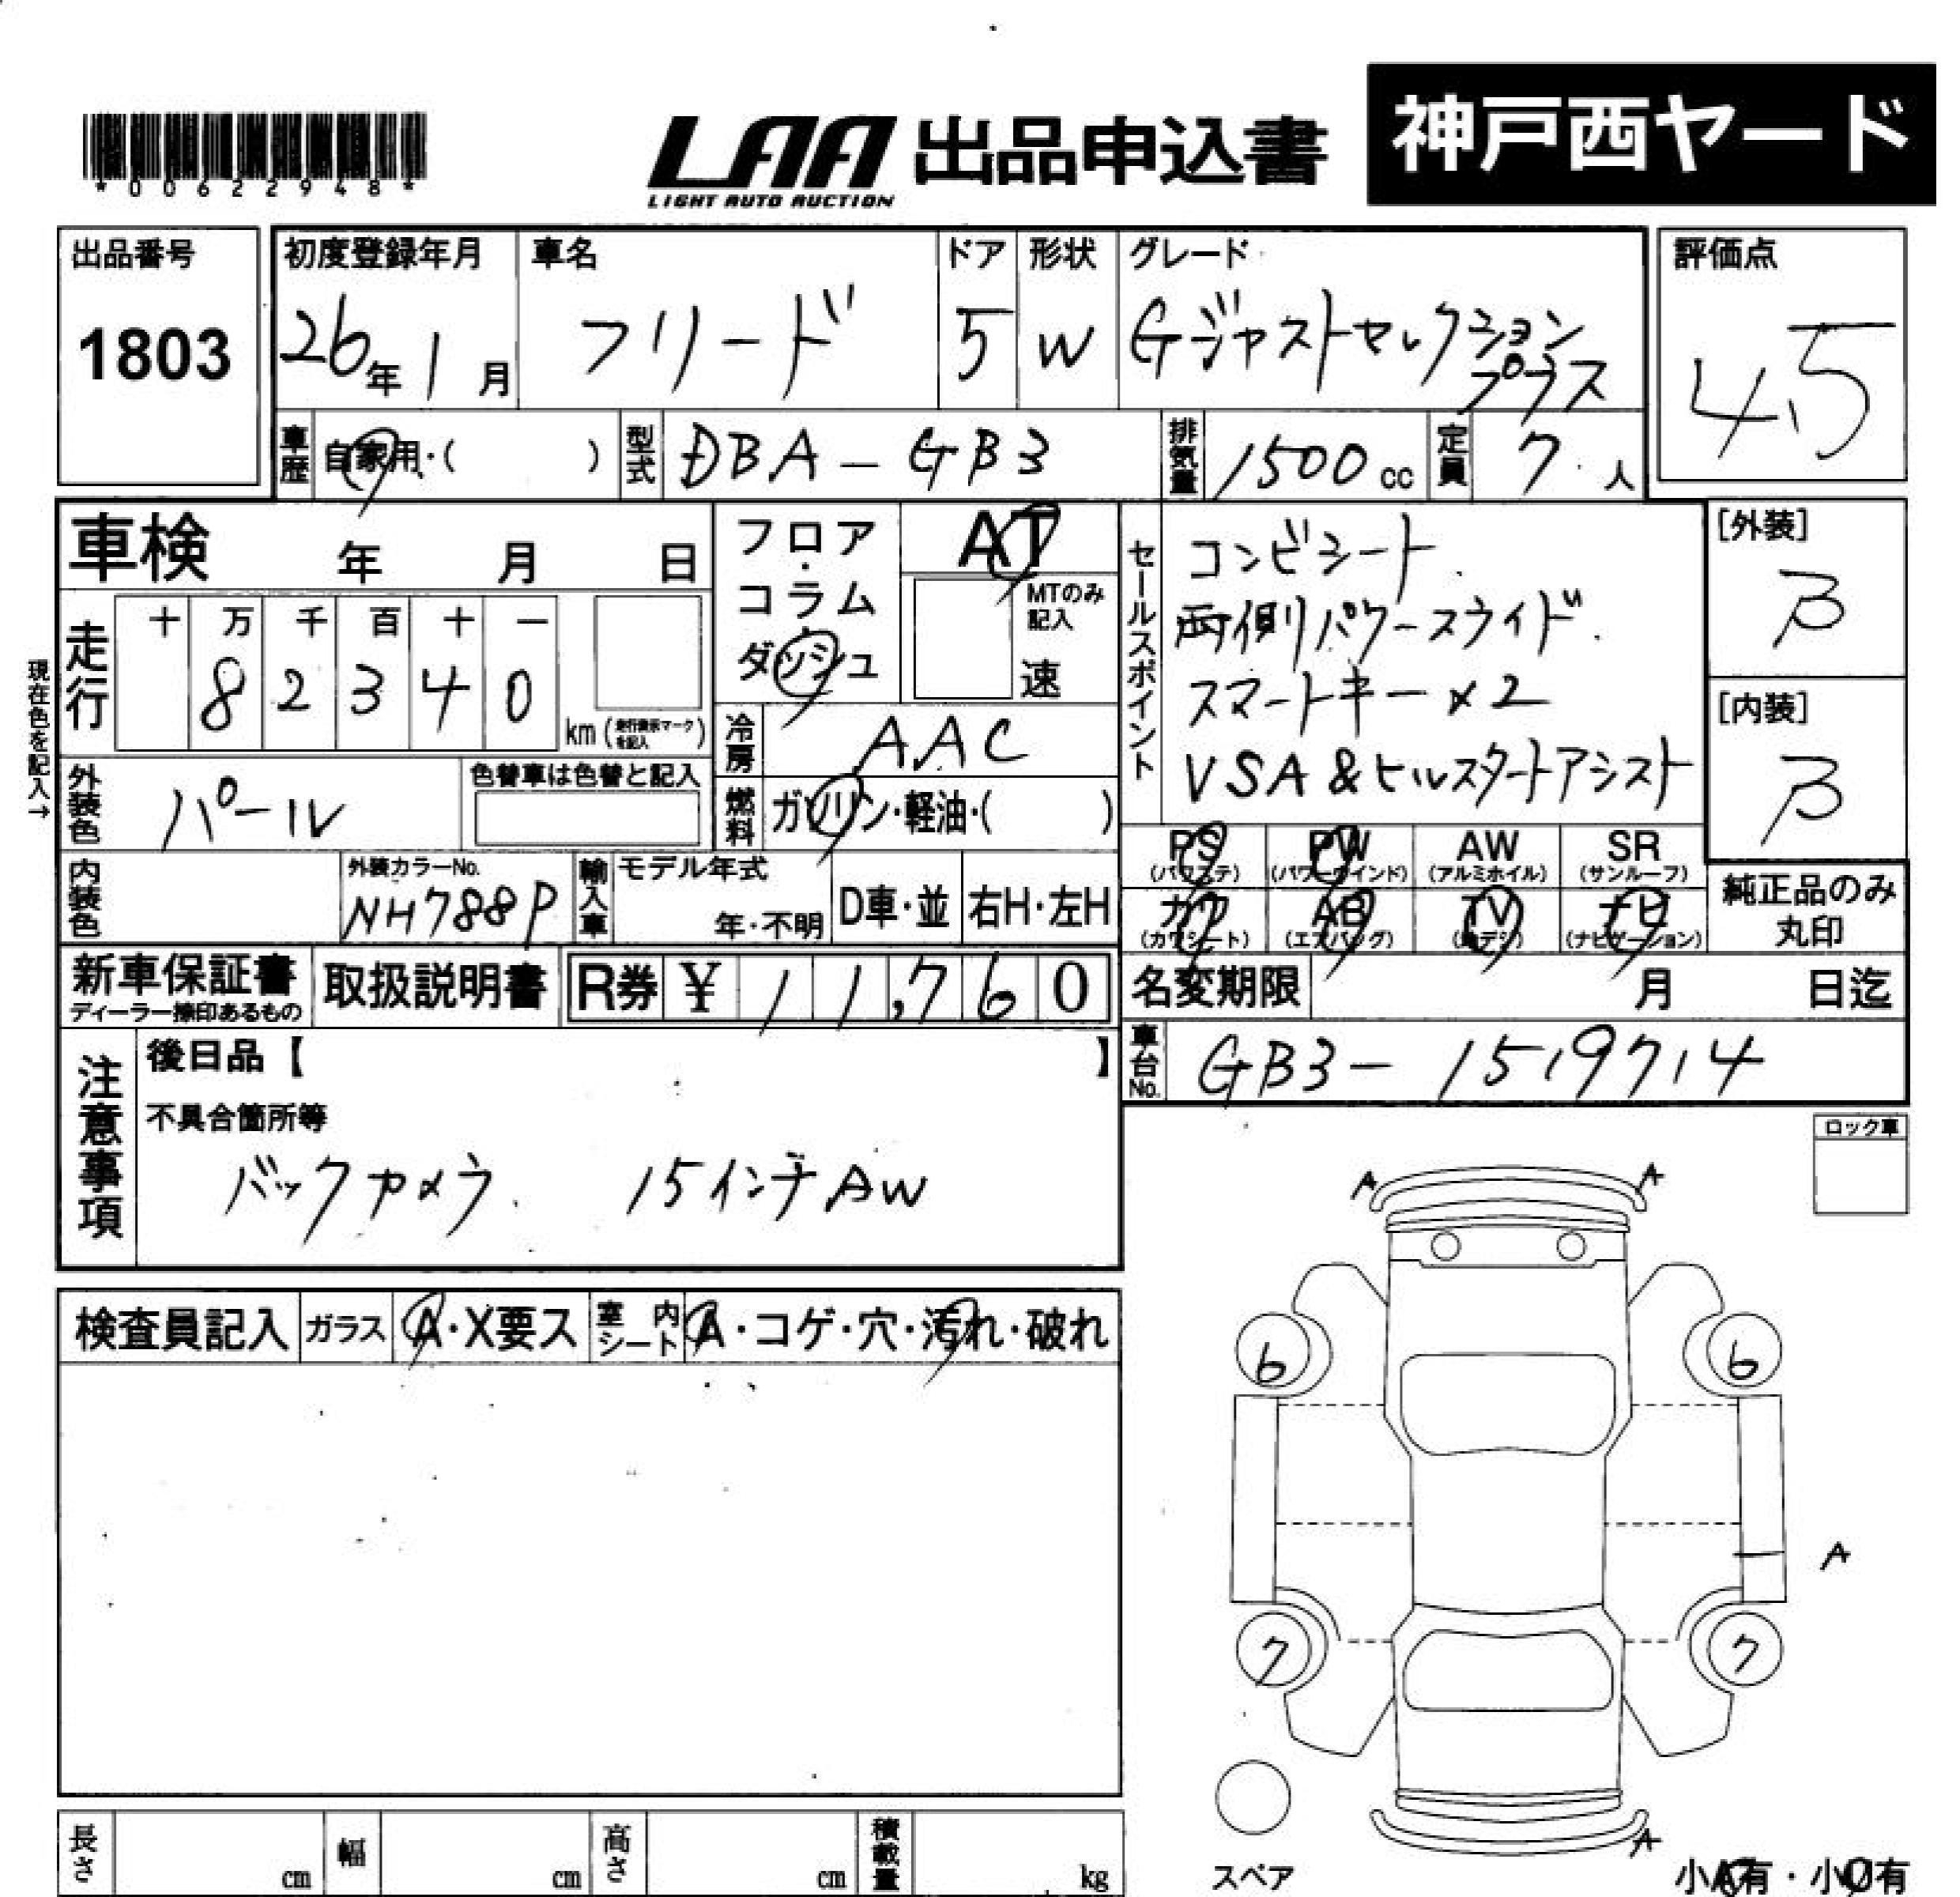 神戸西ヤード
LAA 出品申込書
LIGHT AUTO AUCTION
*00622948*
出品番号 初度登録年月 車名 ドア 形状 グレード 評価点
1803 26年 1月 フリード 5 W Gジャストセレクション
プラス
4.5
車歴 自家用・( ) 型式 DBA-GB3 排気量 1500cc 定員 7人
車検 年 月 日
フロア・コラム・ダッシュ
AT
MTのみ記入
速
現在色を記入→
走行 十 万 千 百 十 一
8 2 3 4 0
km (走行表示マークを記入)
冷房 AAC
燃料 ガソリン・軽油・( )
外装色 パール
色替車は色替と記入
内装色
外装カラーNo.
NH788P
輸入車 モデル年式
年・不明 D車・並 右H・左H
セールスポイント
コンビシート.
両側パワースライド.
スマートキー×2
VSA&ヒルスタートアシスト
[外装]
B
[内装]
B
PS PW AW SR
(パワステ) (パワーウインド) (アルミホイル) (サンルーフ)
カワ AB TV ナビ
(カワシート) (エアバッグ) (地デジ) (ナビゲーション)
純正品のみ
丸印
新車保証書
ディーラー捺印あるもの
取扱説明書 R券 ¥ 11,760
名変期限 月 日迄
車台No. GB3-1519714
注意事項
後日品【 】
不具合箇所等
バックカメラ. 15インチAW
ロック車
検査員記入 ガラス A・X要ス 室内シート A・コゲ・穴・汚れ・破れ
A A
6 6
A
7 7
A
スペア
小A有・小U有
長さ cm 幅 cm 高さ cm 積載量 kg